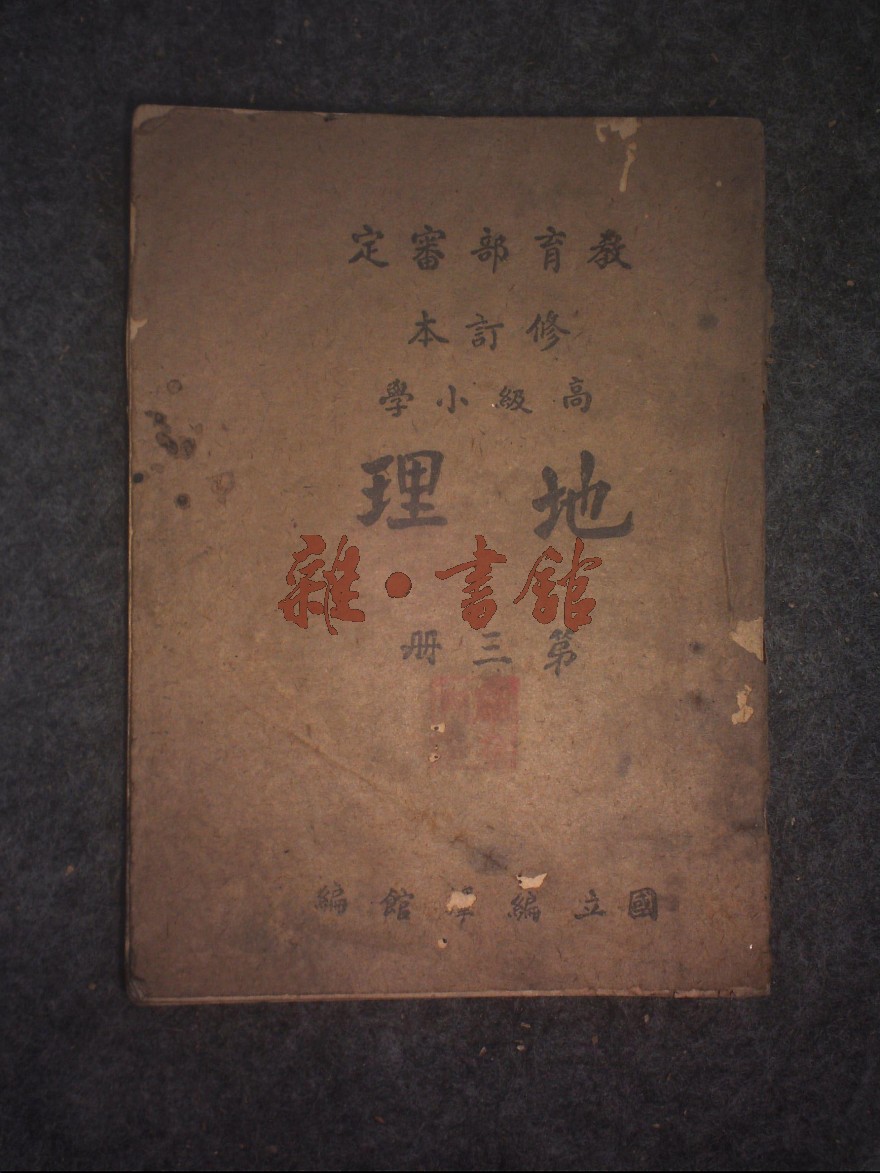 教育部審定
修訂本
高級小學
地理
雜·書館
第三冊
國立編譯館編